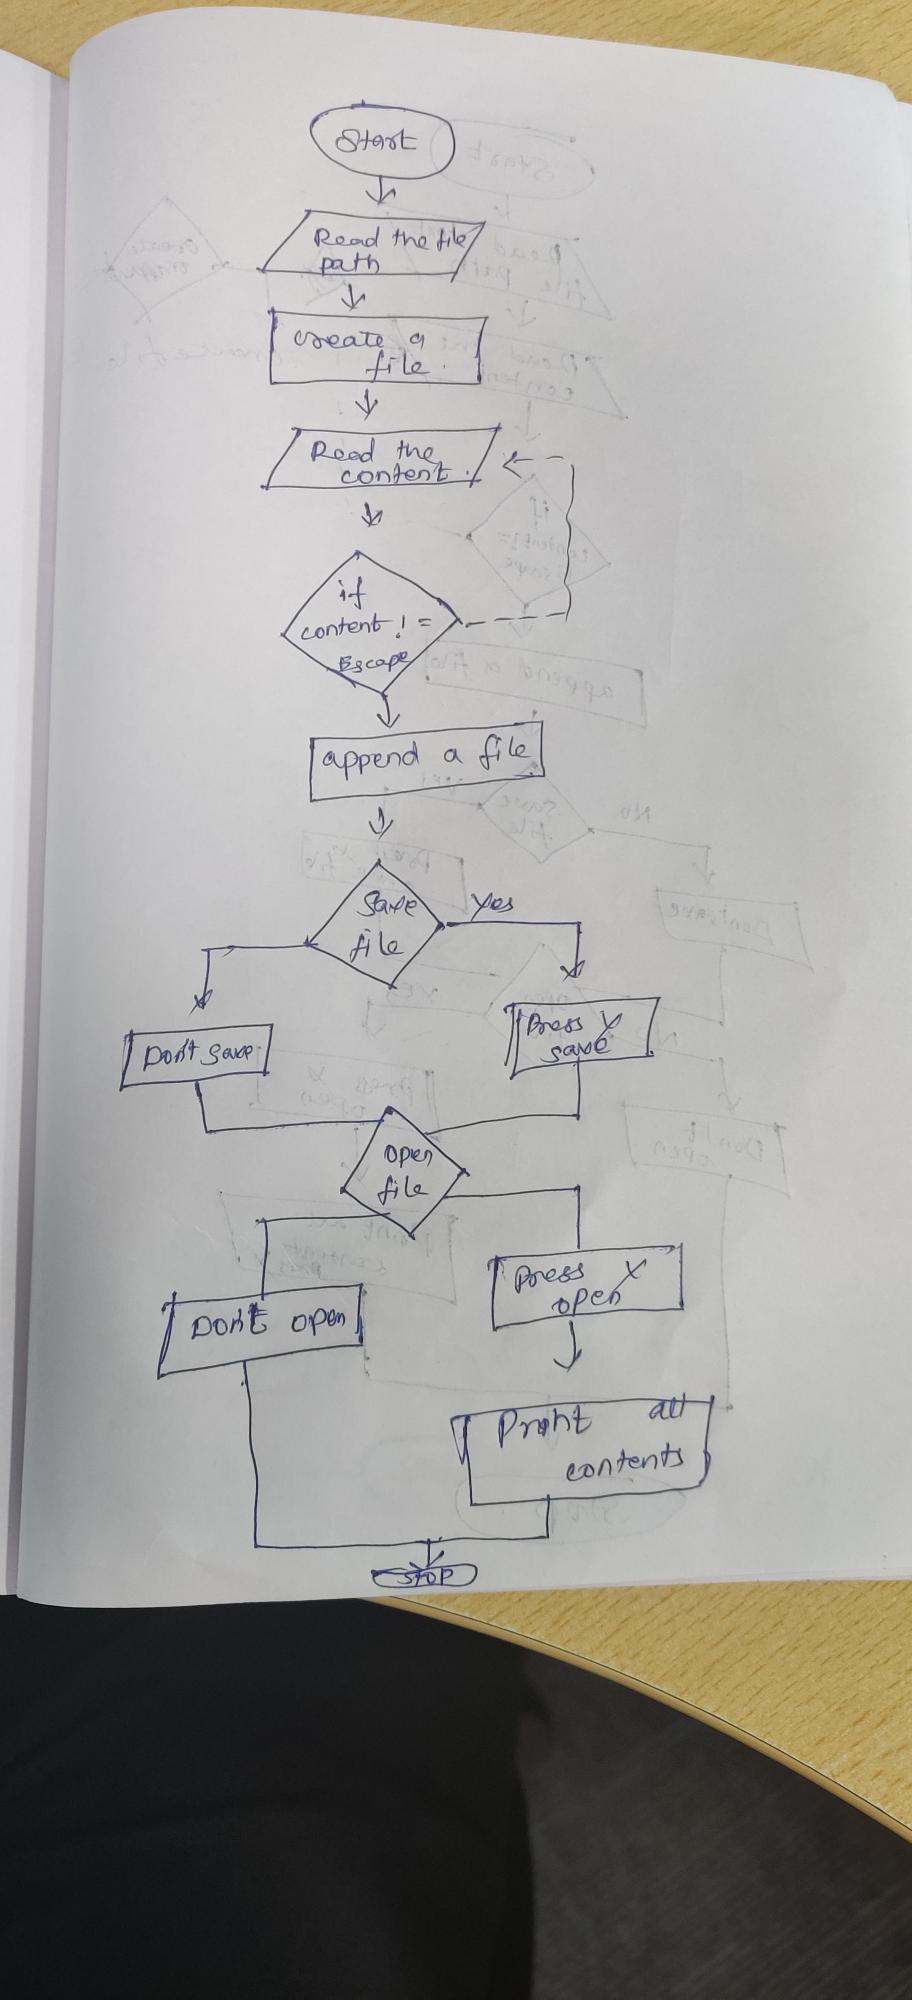 Start
Read the file
path
create a
file.
Read the
content.
if
content! =
Escape
append a file
Save
file
Yes
Don't save
Press Y
save
open
file
Press Y
open
Don't open
Print all
contents
STOP